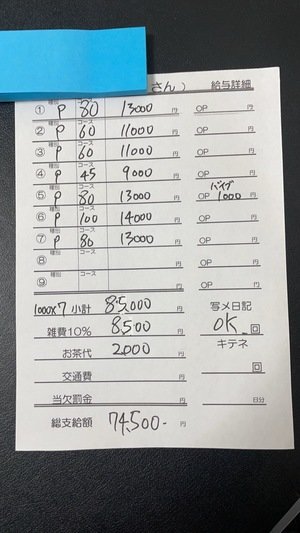 さん） 給与詳細
① 種別 P コース 80 13000 円 OP 円
② 種別 P コース 60 11000 円 OP 円
③ 種別 P コース 60 11000 円 OP 円
④ 種別 P コース 45 9000 円 OP 円
⑤ 種別 P コース 80 13000 円 OP バイブ 1000 円
⑥ 種別 P コース 100 14000 円 OP 円
⑦ 種別 P コース 80 13000 円 OP 円
⑧ 種別 コース 円 OP 円
⑨ 種別 コース 円 OP 円
1000×7 小計 85,000 円 写メ日記
雑費10% 8500 円 OK 回
お茶代 2000 円 キテネ
交通費 円 回
当欠罰金 円 日分
総支給額 74,500- 円